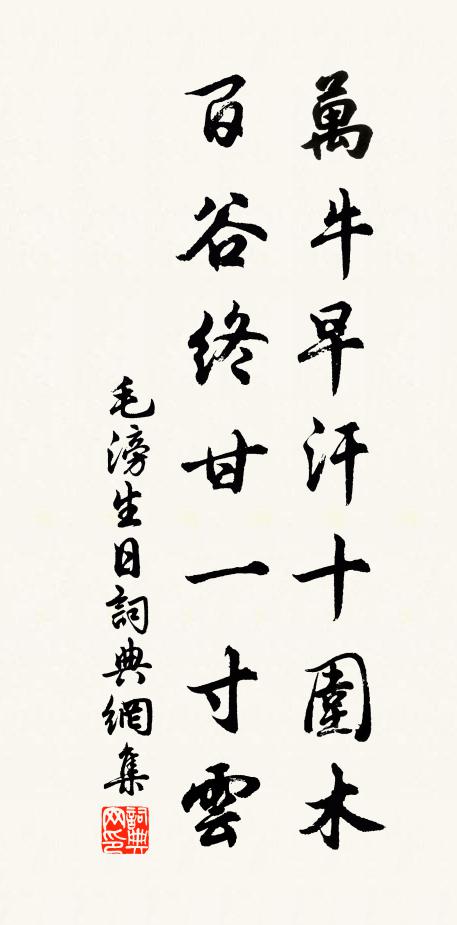 萬牛早汗十圍木
百谷終甘一寸雲
毛滂生日詞典網集
詞典网印